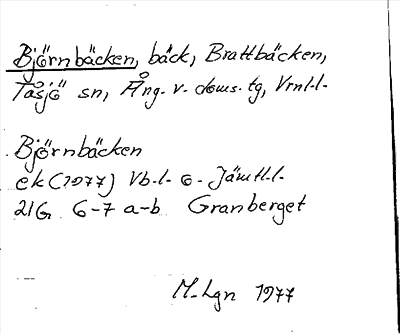 Björnbäcken, bäck, Brattbäcken,
Tåsjö sn, Ång. v. doms. tg, Vrnl-l.
Björnbäcken
ek (1977) Vb.l. o. Jämtl.l.
21G 6-7 a-b Granberget
M. Lgn 1977